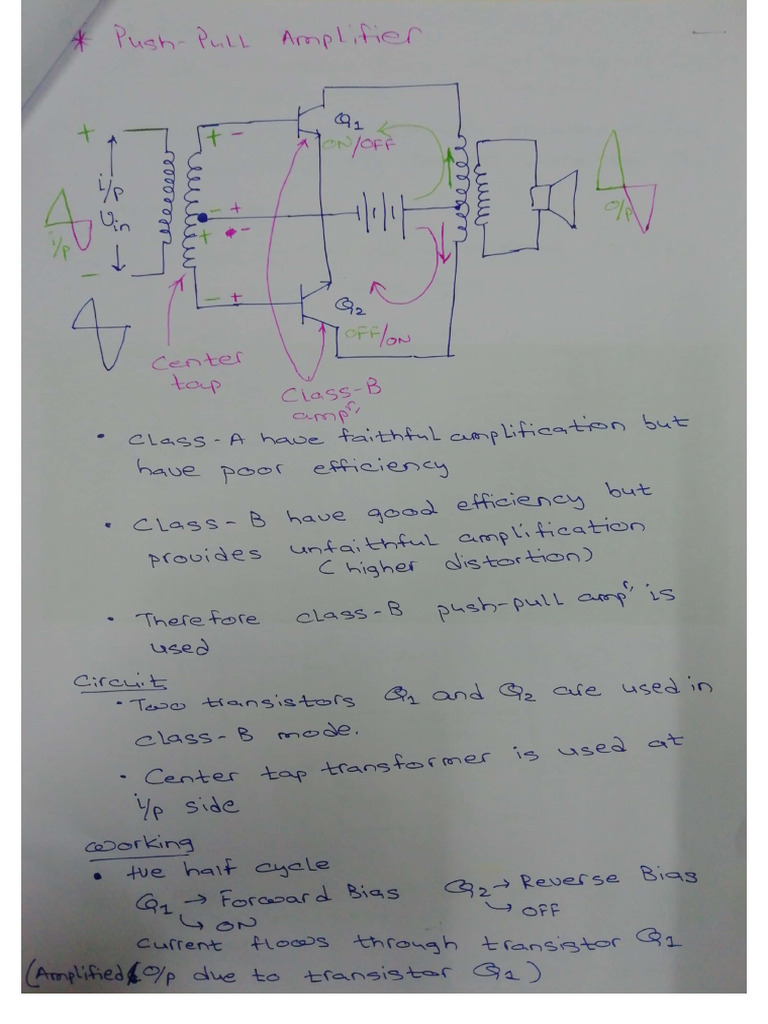 * Push-Pull Amplifier
Q1
ON/OFF
+
+ -
i/p
Vin
i/p
- +
+ -
o/p
-
- +
Q2
OFF/ON
Center
tap
Class-B
ampr.
• Class-A have faithful amplification but
have poor efficiency
• Class-B have good efficiency but
provides unfaithful amplification
(higher distortion)
• Therefore class-B push-pull ampr. is
used
Circuit
• Two transistors Q1 and Q2 are used in
class-B mode.
• Center tap transformer is used at
i/p side
Working
• +ve half cycle
Q1 → Forward Bias Q2 → Reverse Bias
↳ ON ↳ OFF
current flows through transistor Q1
(Amplified o/p due to transistor Q1)